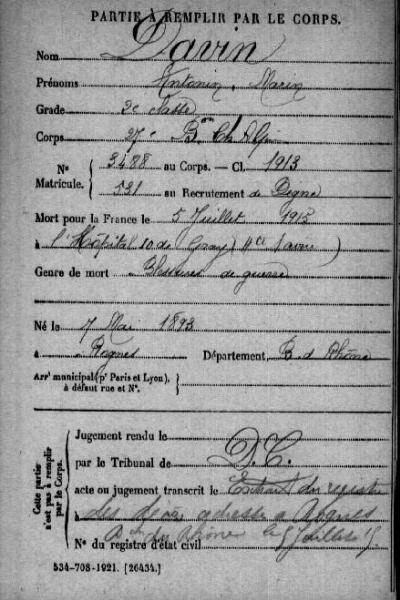 PARTIE À REMPLIR PAR LE CORPS.
Nom Davin
Prénoms Antonin, Marin
Grade 2e classe
Corps 27e Bon Ch Alpin
Nos Matricule. { 3488 au Corps. — Cl. 1913
521 au Recrutement de Digne
Mort pour la France le 5 Juillet 1915
à l'Hôpital 10 de Gray (Hte Saône)
Genre de mort Blessures de guerre
Né le 7 Mai 1893
à Rognes Département B. d Rhône
Arrt municipal (pr Paris et Lyon), à défaut rue et No.
Cette partie n'est pas à remplir par le Corps.
Jugement rendu le
par le Tribunal de D.C.
acte ou jugement transcrit le Extrait du registre
des décès adressé à Rognes
No du registre d'état civil Bches du Rhône le 5 Juillet 15
534-708-1921. [26434.]